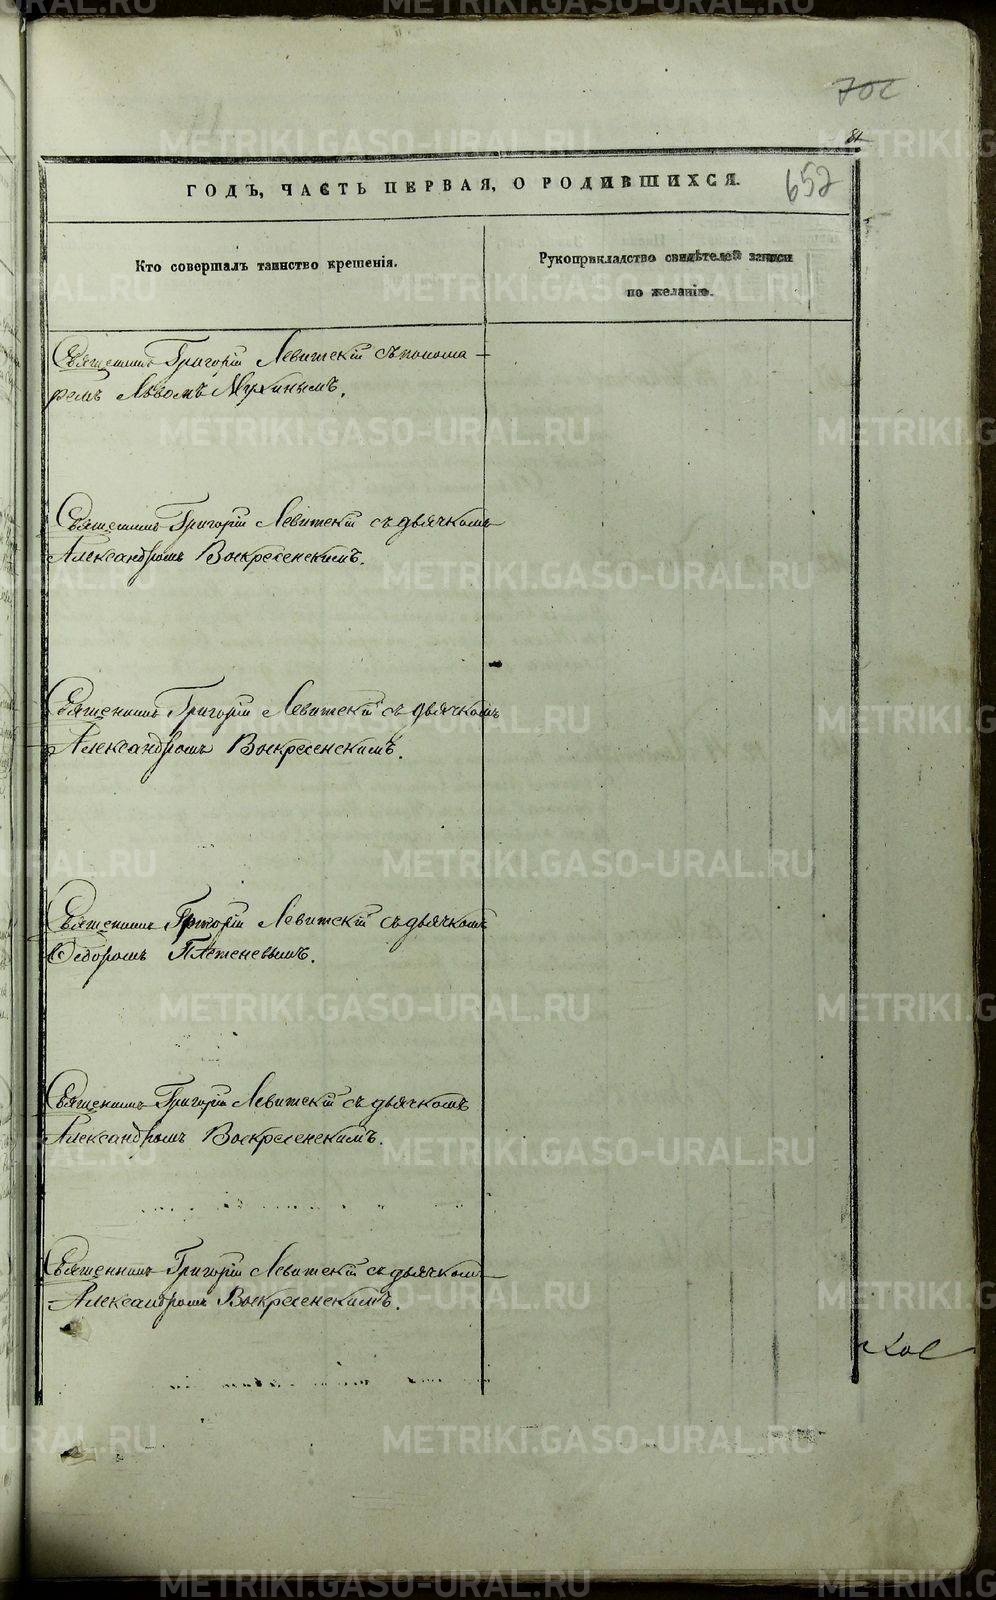 702
81
652
ГОДЪ, ЧАСТЬ ПЕРВАЯ, О РОДИВШИХСЯ.
Кто совершалъ таинство крещенія.
Рукоприкладство свидѣтелей записи
по желанію.
Священникъ Григорій Левитскій съ понома-
ремъ Львомъ Мухинымъ.
Священникъ Григорій Левитскій съ дьячкомъ
Александромъ Воскресенскимъ.
Священникъ Григорій Левитскій съ дьячкомъ
Александромъ Воскресенскимъ.
Священникъ Григорій Левитскій съ дьячкомъ
Ѳедоромъ Плетеневымъ.
Священникъ Григорій Левитскій съ дьячкомъ
Александромъ Воскресенскимъ.
Священникъ Григорій Левитскій съ дьячкомъ
Александромъ Воскресенскимъ.
METRIKI.GASO-URAL.RU